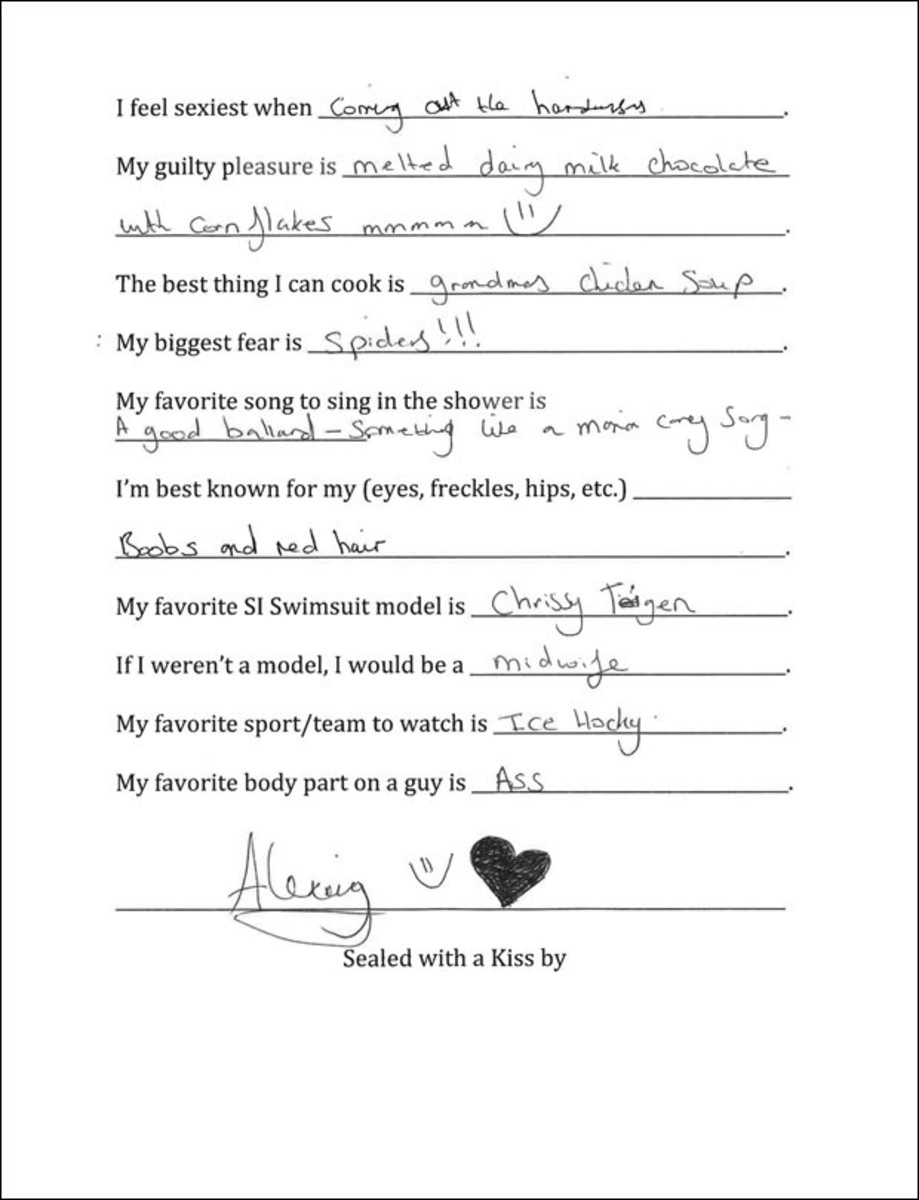 I feel sexiest when Coming out the hairdressers.
My guilty pleasure is melted dairy milk chocolate
with corn flakes mmmm m
The best thing I can cook is grandmas chicken soup.
: My biggest fear is Spiders!!!.
My favorite song to sing in the shower is
A good ballard - Something like a maria carey song -
I'm best known for my (eyes, freckles, hips, etc.)
Boobs and red hair.
My favorite SI Swimsuit model is Chrissy Teigen.
If I weren't a model, I would be a midwife.
My favorite sport/team to watch is Ice Hocky.
My favorite body part on a guy is Ass.
Sealed with a Kiss by